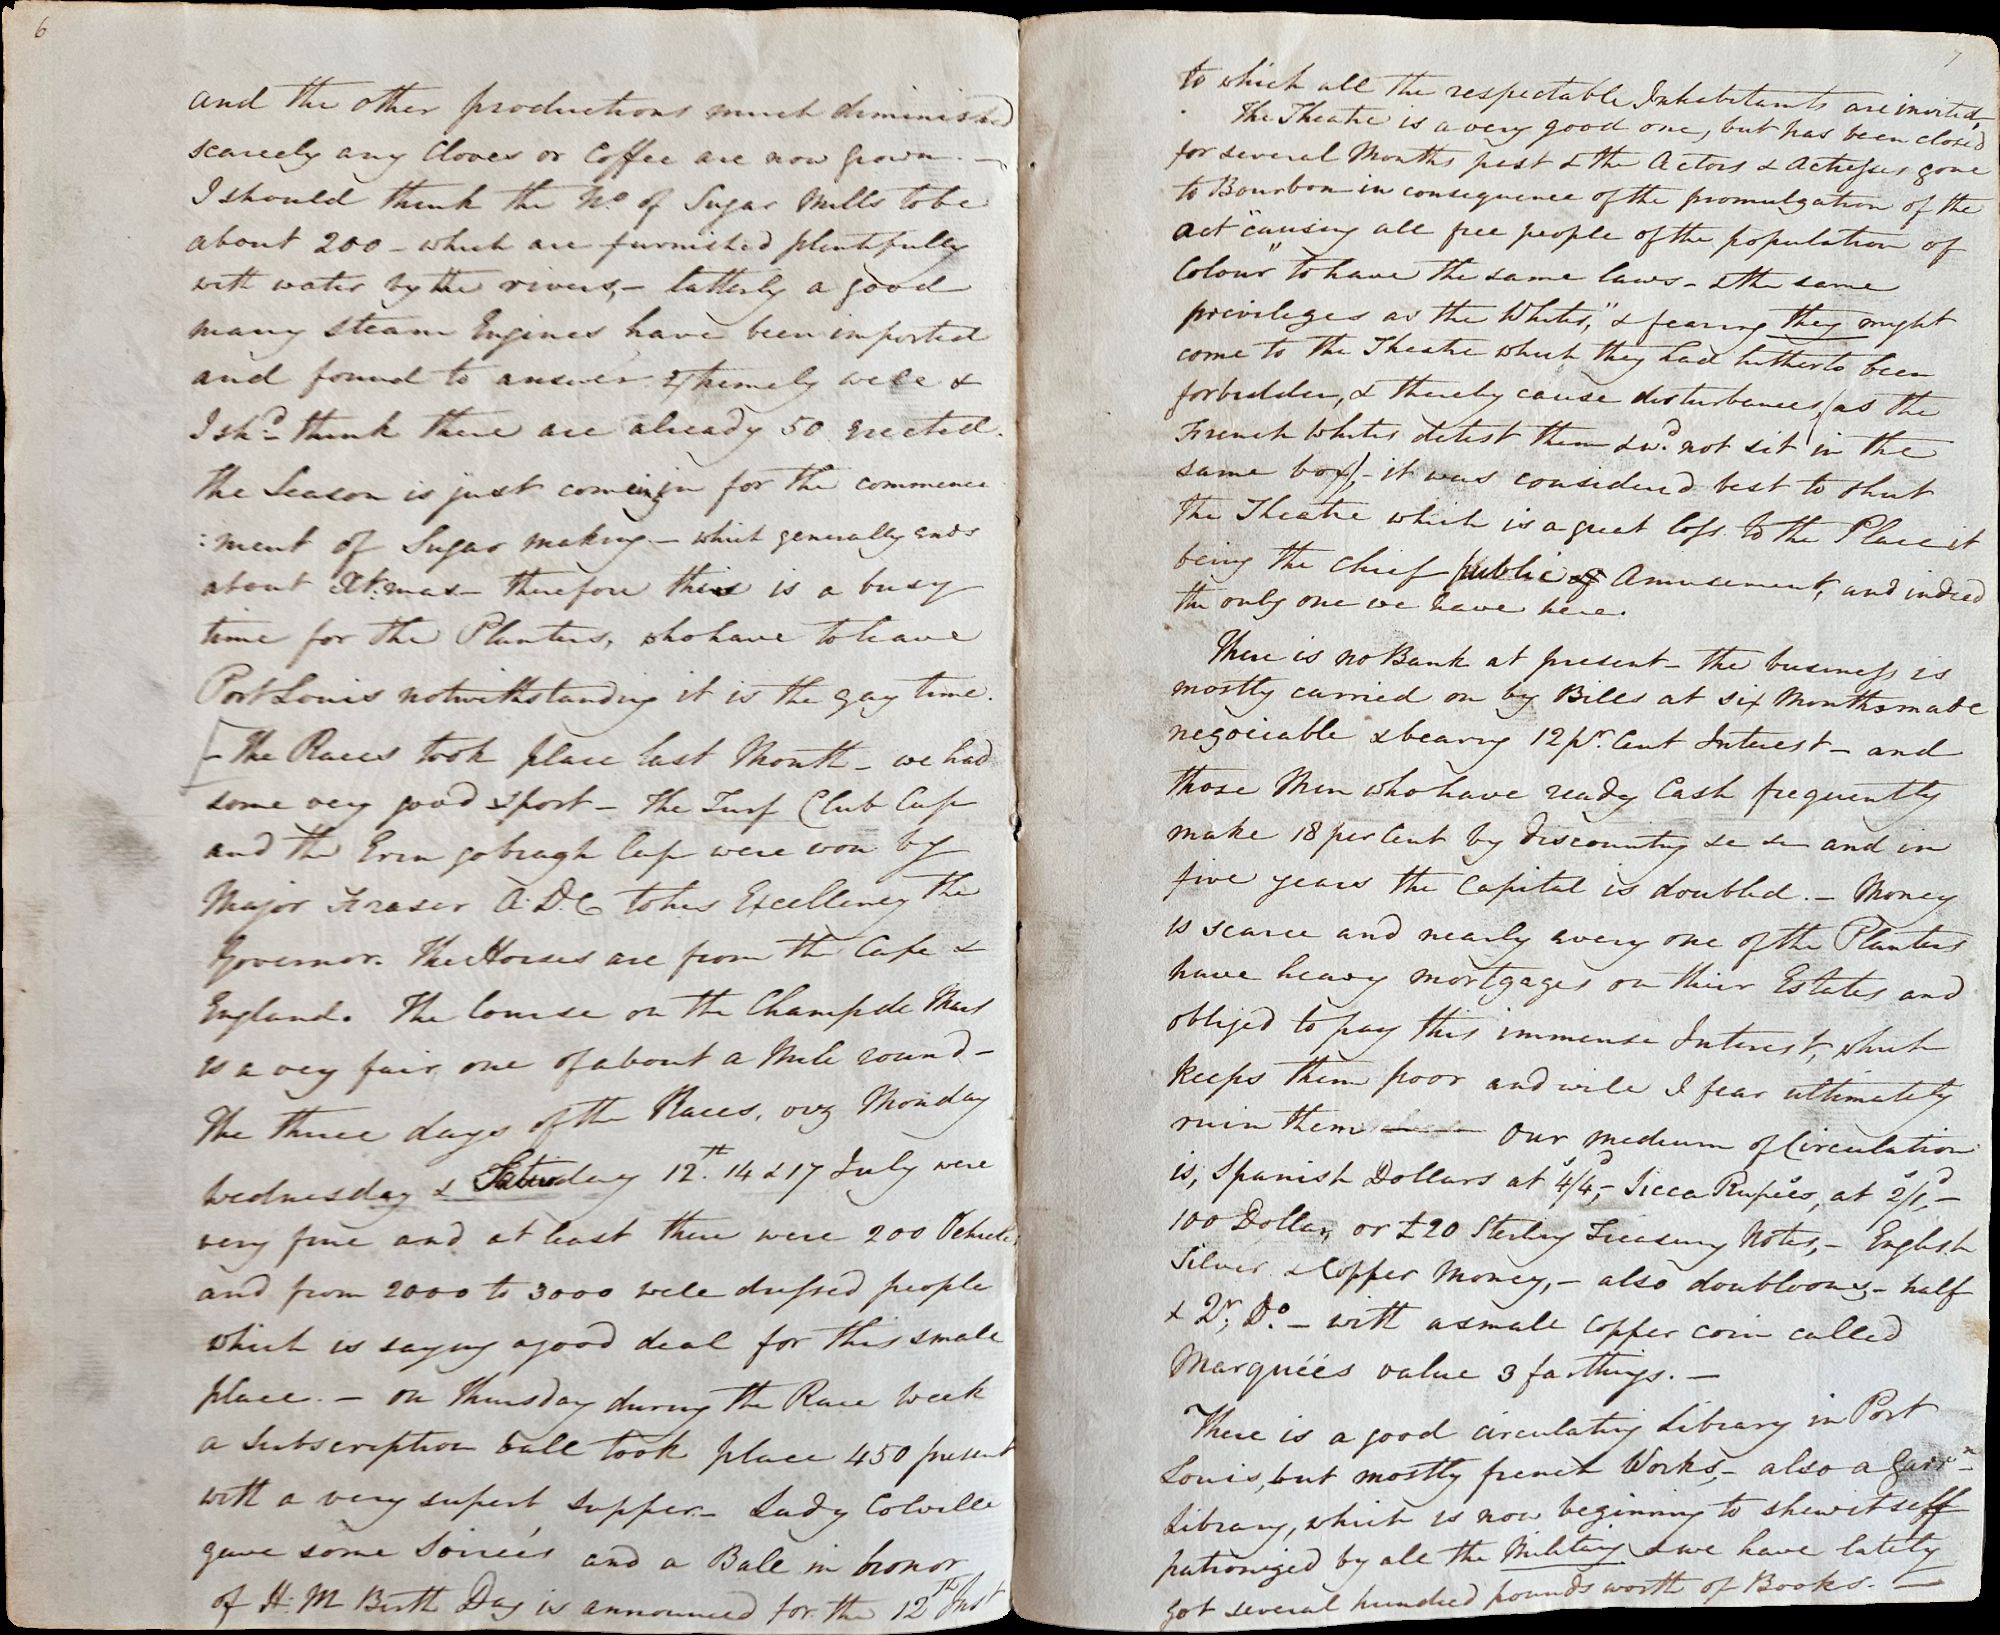 6
and the other productions much diminished
scarcely any Cloves or Coffee are now grown. —
I should think the No. of Sugar Mills to be
about 200 – which are furnished plentifully
with water by the rivers, – latterly a good
many steam Engines have been imported
and found to answer extremely well &
I shd. think there are already 50 erected.
the Season is just coming in for the commence
:ment of Sugar making – which generally ends
about Xt:mas – therefore this is a busy
time for the Planters, who have to leave
Port Louis notwithstanding it is the gay time.
[– The Races took place last Month – we had
some very good sport – The Turf Club Cup
and the Erin gobragh Cup were won by
Major Fraser A.D.C to his Excellency the
Governor. The Horses are from the Cape &
England. The Course on the Champ de Mars
is a very fair one of about a Mile round –
The three days of the Races, viz Monday
Wednesday & Saturday 12th. 14 & 17 July were
very fine and at least there were 200 Vehicles
and from 2000 to 3000 well dressed people
which is saying a good deal for this small
place. – On Thursday during the Race Week
a Subscription ball took place 450 present
with a very superb Supper – Lady Colville
gave some Soireés and a Ball in honor
of H.M Birth Day is announced for the 12th Inst
7
to which all the respectable Inhabitants are invited.
The Theatre is a very good one, but has been closed
for several Months past & the Actors & Actresses gone
to Bourbon in consequence of the promulgation of the
Act "causing all free people of the population of
Colour" to have the same laws – & the same
privileges as the Whites," & fearing they might
come to the Theatre which they had hitherto been
forbidden, & thereby cause disturbances, (as the
French Whites detest them & wd. not sit in the
same box), – it was considered best to shut
the Theatre which is a great loss to the Place it
being the chief public Amusement, and indeed
the only one we have here.
There is no Bank at present – the business is
mostly carried on by Bills at six Months made
negociable & bearing 12 pr. Cent Interest – and
those Men who have ready Cash frequently
make 18 per Cent by discounting &c &c and in
five years the Capital is doubled. – Money
is scarce and nearly every one of the Planters
have heavy mortgages on their Estates and
obliged to pay this immense Interest, which
keeps them poor and will I fear ultimately
ruin them — — Our medium of Circulation
is, Spanish Dollars at 4s/4d, – Sicca Rupees, at 2s/1d, –
100 Dollar, or £20 Sterling Treasury Notes, – English
Silver & Copper Money, – also doubloons, – half
& Qr; Do. – with a small copper coin called
Marquéés value 3 farthings. —
There is a good circulating Library in Port
Louis, but mostly french Works, – also a Garrn
Library, which is now beginning to shew itself
patronized by all the Military & we have lately
got several hundred pounds worth of Books. —